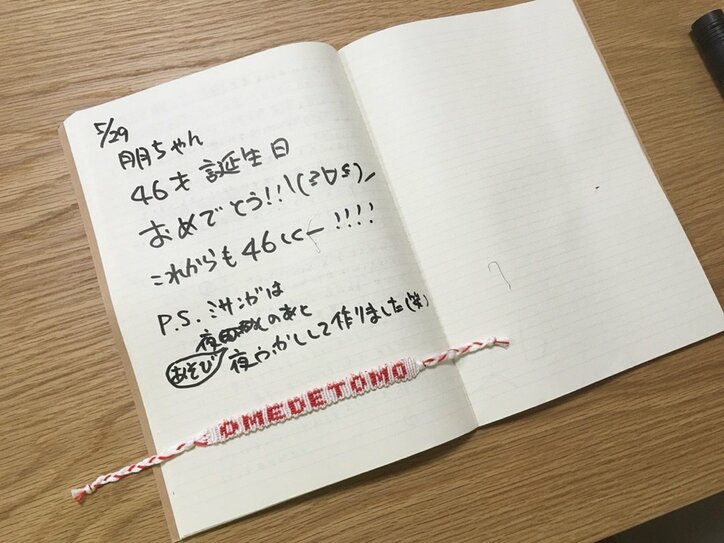 5/29
朋ちゃん
46才 誕生日
おめでとう!!\(≧∀≦)/
これからも46しくー!!!!
P.S. ミサンガは
夜のあと
あそび 夜ふかしして作りました(笑)
OMEDETOMO